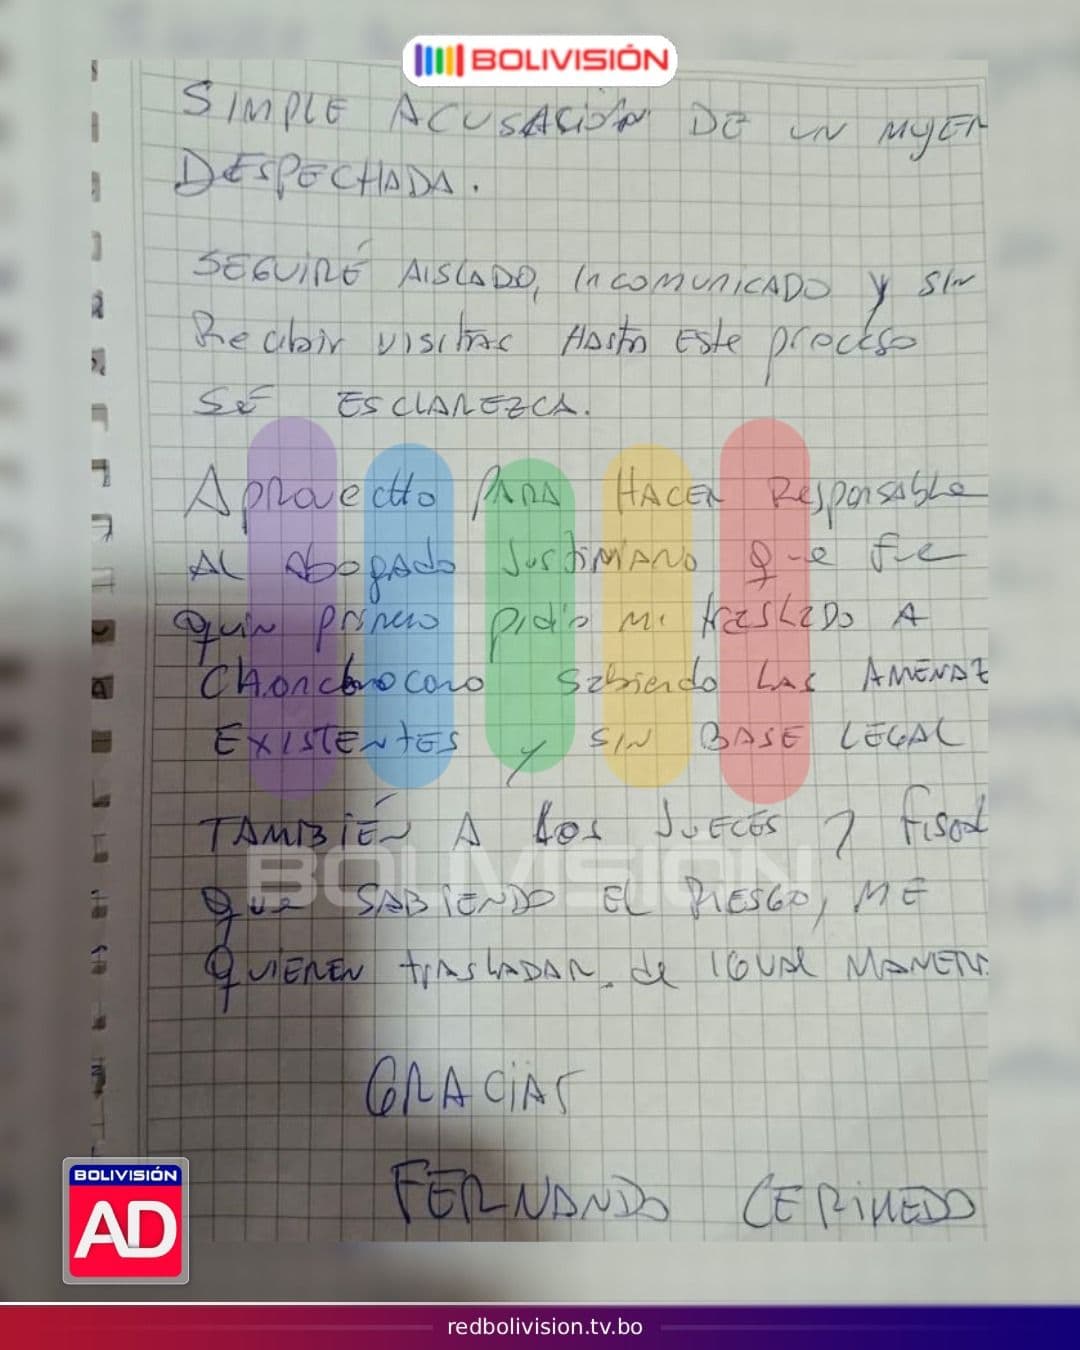 BOLIVISIÓN
SIMPLE ACUSACIÓN DE UN MUJER
DESPECHADA.
SEGUIRÉ AISLADO, INCOMUNICADO y SIN
Recibir visitas HASTA ESTE proceso
SE ESCLAREZCA.
Aprovecho PARA HACER Responsable
AL Abogado JUSTINIANO que fue
Quin primero pidió mi trasLADO A
CHonchocoro Sabiendo LAS AMENAZ
EXISTENTES y SIN BASE LEGAL
TAMBIÉN A Los JUECES y fiscal
Que SABIENDO EL RIESGO, ME
QUIEREN TRASLADAR. de IGUAL MANERA
BOLIVISIÓN
GRACIAS
FERNANDO CERIMEDO
BOLIVISIÓN
AD
redbolivision.tv.bo